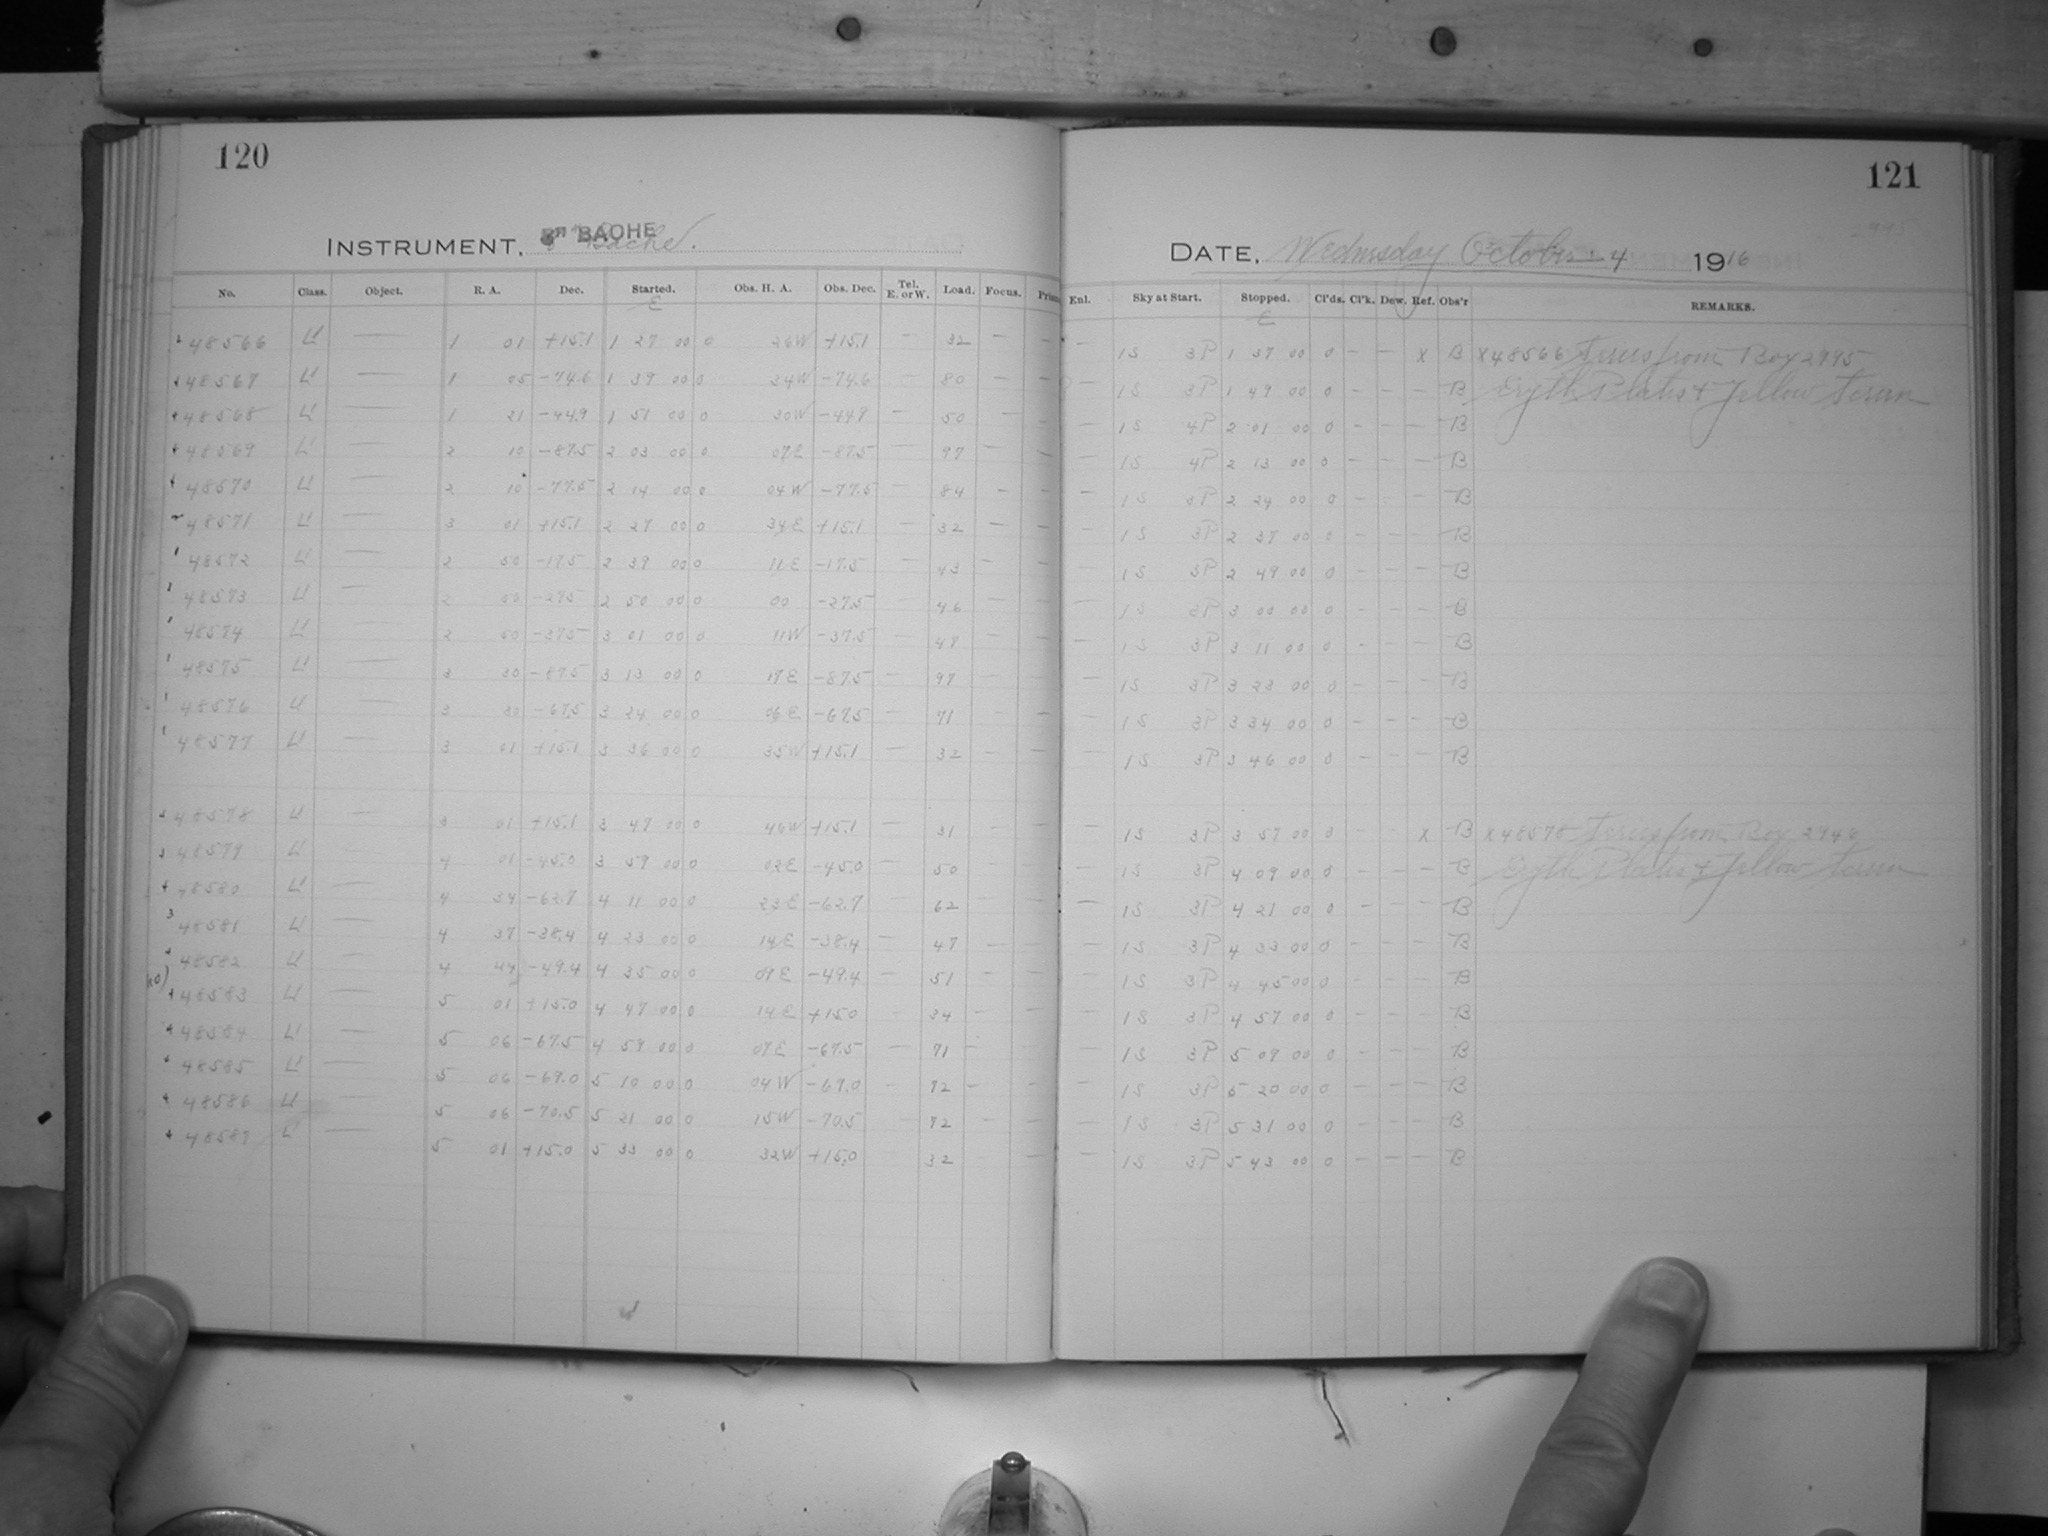 120
121
INSTRUMENT, 8" BACHE Bache.
DATE, Wednesday October 4 1916
No. Class. Object. R. A. Dec. Started. Obs. H. A. Obs. Dec. Tel. E. or W. Load. Focus. Enl. Sky at Start. Stopped. Cl'ds. Cl'k. Dew. Ref. Obs'r REMARKS.
E E
48566 — 1 01 +15.1 1 27 00 0 26W +15.1 — 32 — — — 1S 3P 1 37 00 0 — — X B X48566 from Box 2995
48567 — 1 05 -74.6 1 39 00 0 34W -74.6 — 80 — — — 1S 3P 1 49 00 0 — — — B Eryth Plates + Yellow
48568 — 1 21 -44.9 1 51 00 0 30W -449 — 50 — — — 1S 4P 2 01 00 0 — — — B
48569 — 2 10 -87.5 2 03 00 0 07E -87.5 — 97 — — — 1S 4P 2 13 00 0 — — — B
48570 — 2 10 -77.5 2 14 00 0 04W -77.5 — 84 — — — 1S 3P 2 24 00 0 — — — B
48571 — 3 01 +15.1 2 27 00 0 34E +15.1 — 32 — — — 1S 3P 2 37 00 0 — — — B
48572 — 2 50 -17.5 2 39 00 0 11E -17.5 — 43 — — — 1S 3P 2 49 00 0 — — — B
48573 — 2 50 -27.5 2 50 00 0 00 -27.5 — 46 — — — 1S 3P 3 00 00 0 — — — B
48574 — 2 50 -37.5 3 01 00 0 11W -37.5 — 47 — — — 1S 3P 3 11 00 0 — — — B
48575 — 3 30 -87.5 3 13 00 0 17E -87.5 — 97 — — — 1S 3P 3 23 00 0 — — — B
48576 — 3 30 -67.5 3 24 00 0 06E -67.5 — 71 — — — 1S 3P 3 34 00 0 — — — B
48577 — 3 01 +15.1 3 36 00 0 35W +15.1 — 32 — — — 1S 3P 3 46 00 0 — — — B
48578 — 3 01 +15.1 3 47 00 0 46W +15.1 — 31 — — — 1S 3P 3 57 00 0 — — X B X48578 from Box 2946
48579 — 4 01 -45.0 3 59 00 0 02E -45.0 — 50 — — — 1S 3P 4 09 00 0 — — — B Eryth Plates + Yellow
48580 — 4 34 -62.7 4 11 00 0 23E -62.7 — 62 — — — 1S 3P 4 21 00 0 — — — B
48581 — 4 37 -38.4 4 23 00 0 14E -38.4 — 47 — — — 1S 3P 4 33 00 0 — — — B
48582 — 4 44 -49.4 4 35 00 0 09E -49.4 — 51 — — — 1S 3P 4 45 00 0 — — — B
48583 — 5 01 +15.0 4 47 00 0 14E +15.0 — 34 — — — 1S 3P 4 57 00 0 — — — B
48584 — 5 06 -67.5 4 59 00 0 07E -67.5 — 71 — — — 1S 3P 5 09 00 0 — — — B
48585 — 5 06 -69.0 5 10 00 0 04W -69.0 — 72 — — — 1S 3P 5 20 00 0 — — — B
48586 — 5 06 -70.5 5 21 00 0 15W -70.5 — 72 — — — 1S 3P 5 31 00 0 — — — B
48587 — 5 01 +15.0 5 33 00 0 32W +15.0 32 — — 1S 3P 5 43 00 0 — — — B